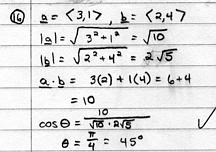 (16) a = ⟨3,1⟩, b = ⟨2,4⟩
|a| = √(3²+1²) = √10
|b| = √(2²+4²) = 2√5
a · b = 3(2) + 1(4) = 6+4
= 10
cos θ = 10/(√10 · 2√5) ✓
θ = π/4 = 45°